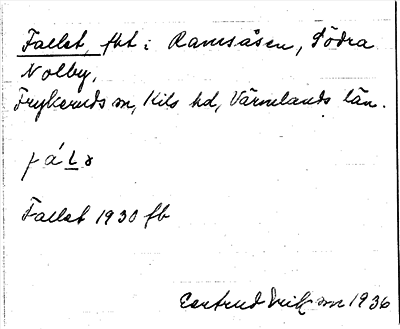 Fallet, fbt i Ramsåsen, Södra
Nolby,
Frykeruds sn, Kils hd, Värmlands län.
fáLɂ
Fallet 1930 fb
Gertrud 1936